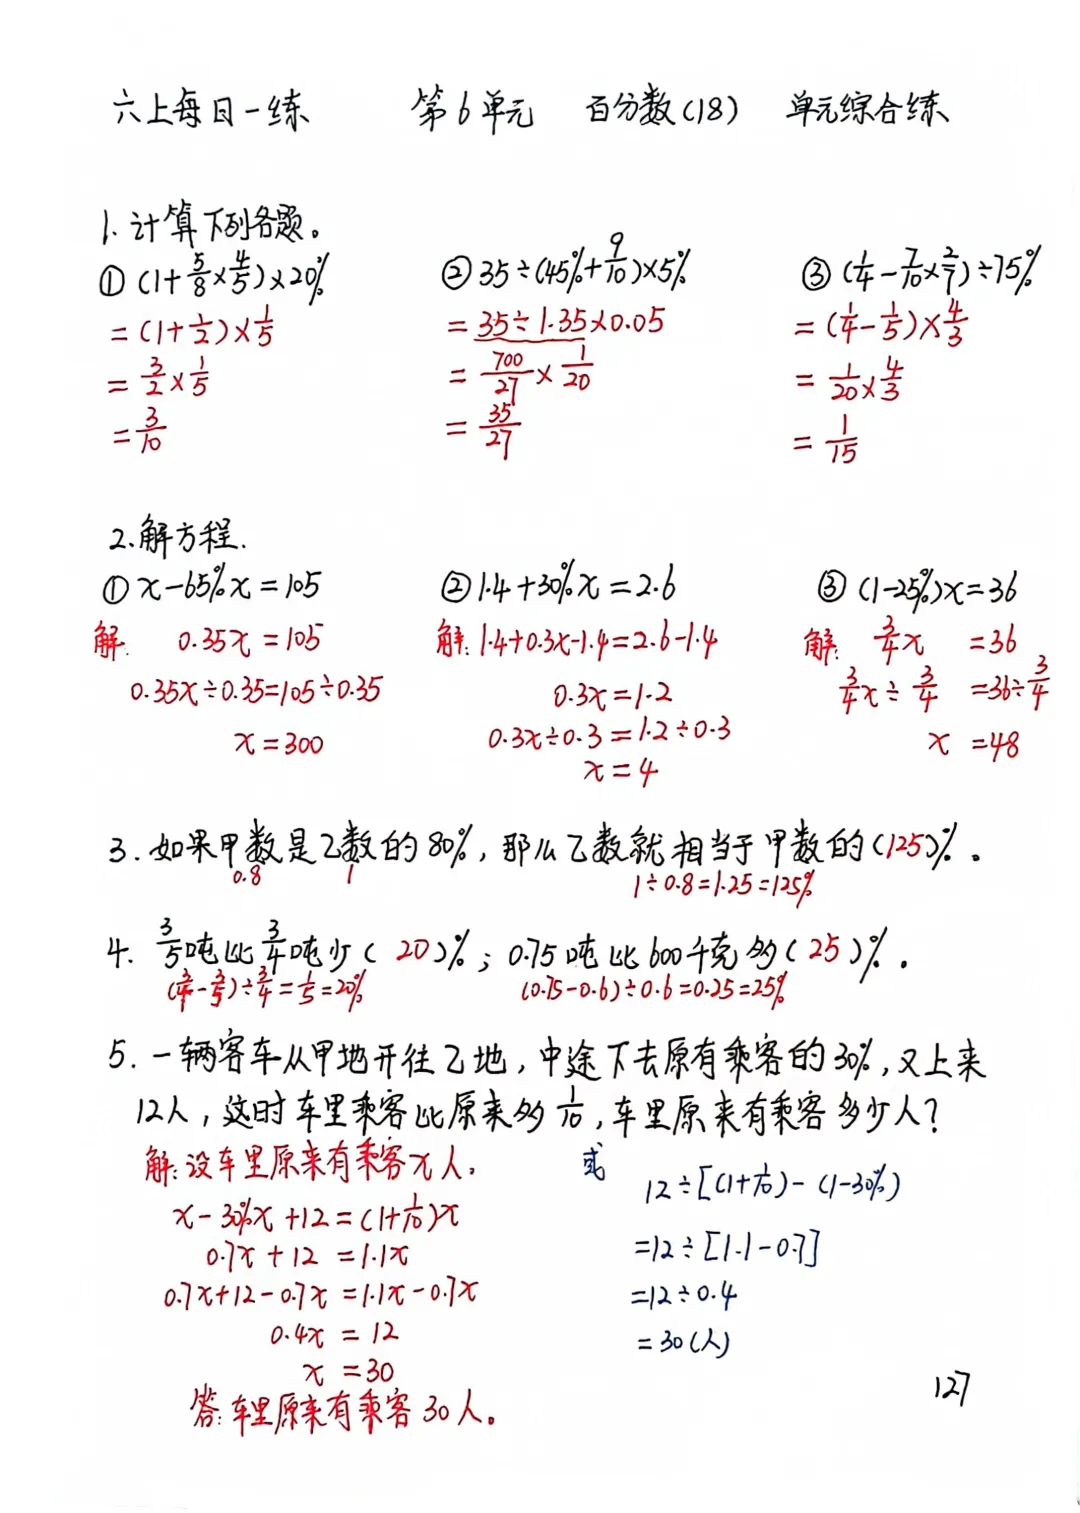 六上每日一练 第6单元 百分数(18) 单元综合练
1. 计算下列各题。
① (1+5/8×4/5)×20% ② 35÷(45%+9/10)×5% ③ (1/4-7/10×2/7)÷75%
=(1+1/2)×1/5 =35÷1.35×0.05 =(1/4-1/5)×4/3
=3/2×1/5 =700/27×1/20 =1/20×4/3
=3/10 =35/27 =1/15
2.解方程.
① x-65%x=105 ② 1.4+30%x=2.6 ③ (1-25%)x=36
解: 0.35x=105 解:1.4+0.3x-1.4=2.6-1.4 解: 3/4x =36
0.35x÷0.35=105÷0.35 0.3x=1.2 3/4x÷3/4 =36÷3/4
x=300 0.3x÷0.3=1.2÷0.3 x =48
x=4
3. 如果甲数是乙数的80%,那么乙数就相当于甲数的(125)%。
0.8 1 1÷0.8=1.25=125%
4. 3/5吨比3/4吨少( 20 )%;0.75吨比600千克多( 25 )%。
(3/4-3/5)÷3/4=1/5=20% (0.75-0.6)÷0.6=0.25=25%
5. 一辆客车从甲地开往乙地,中途下去原有乘客的30%,又上来
12人,这时车里乘客比原来多1/10,车里原来有乘客多少人?
解:设车里原来有乘客x人。 或
x-30%x+12=(1+1/10)x 12÷[(1+1/10)-(1-30%)
0.7x+12=1.1x =12÷[1.1-0.7]
0.7x+12-0.7x=1.1x-0.7x =12÷0.4
0.4x=12 =30(人)
x=30
答:车里原来有乘客30人。
127